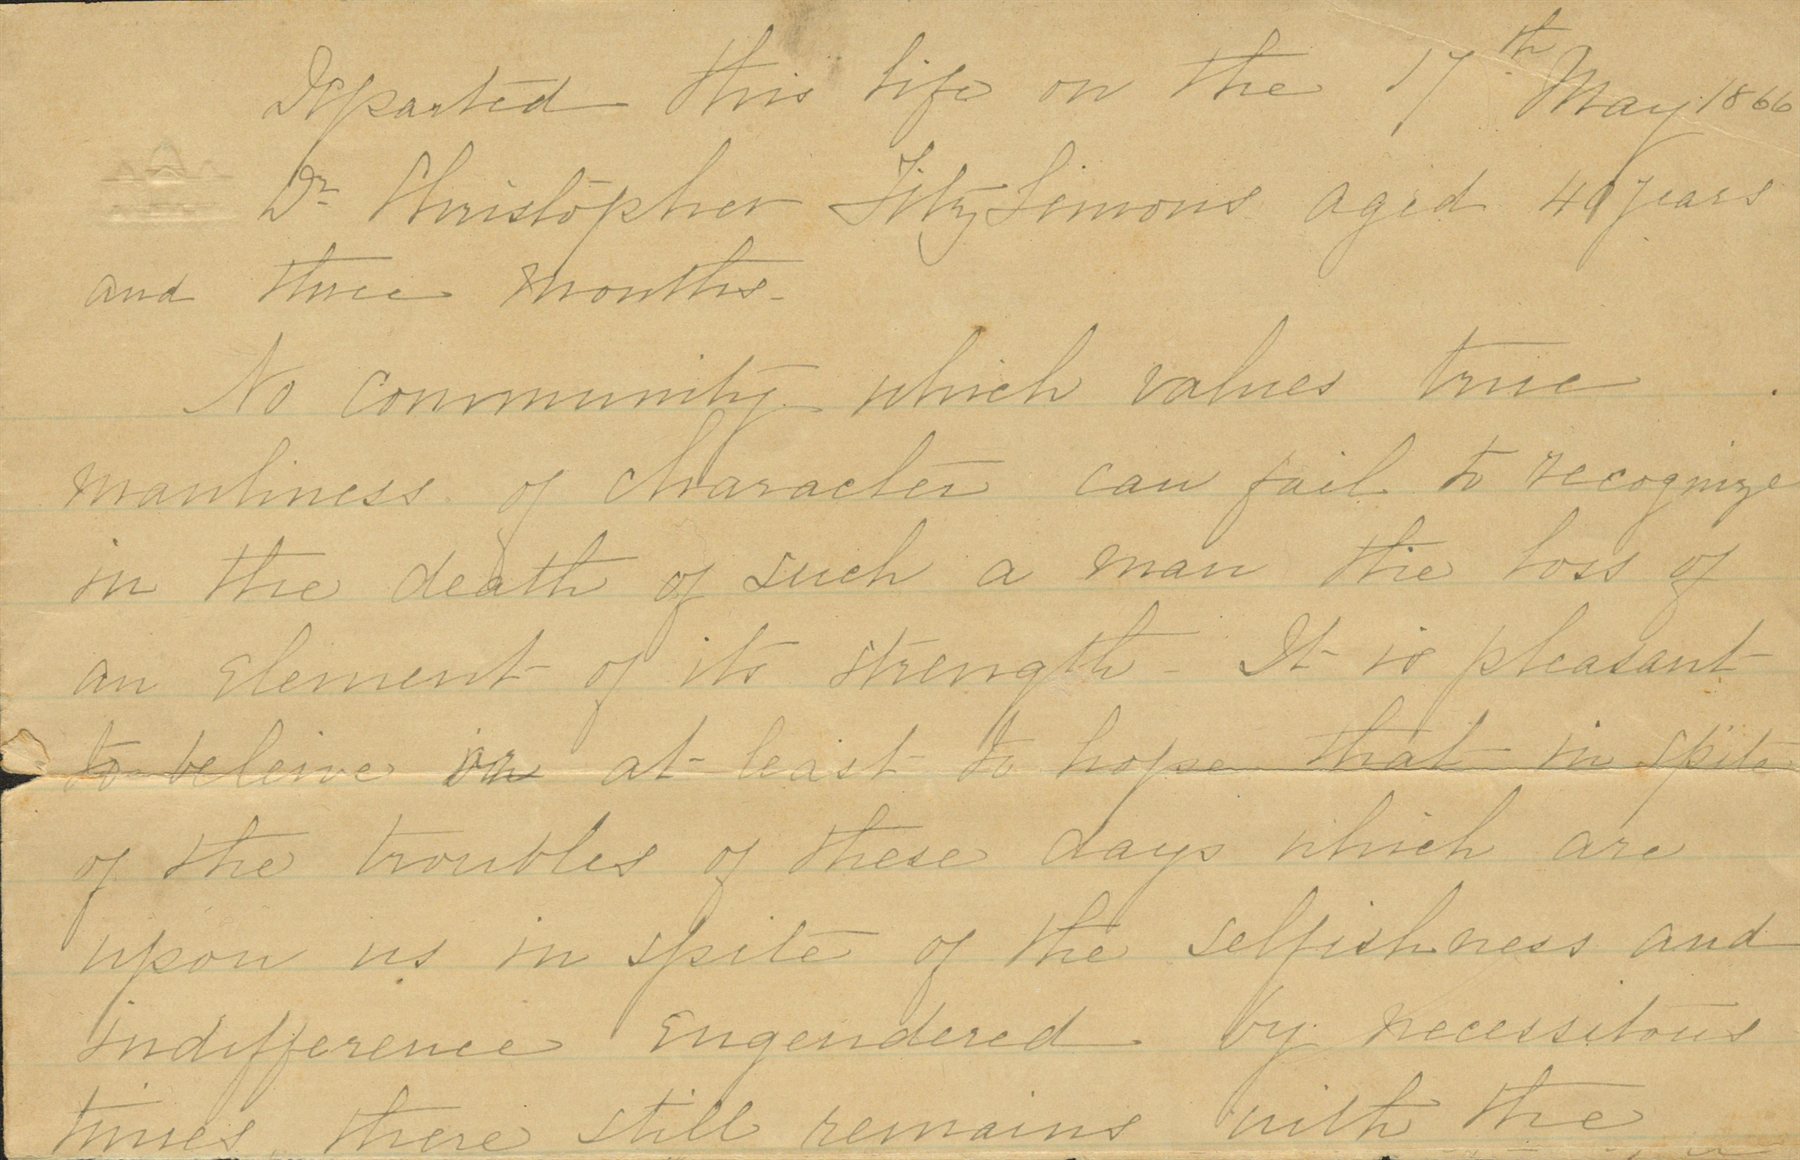 Departed this life on the 17th May 1866
Dr Christopher FitzSimons aged 49 years
and three months -
No community which values true
manliness of character can fail to recognize
in the death of such a man the loss of
an Element of its strength - It is pleasant
to beleive or at least to hope that in spite
of the troubles of these days which are
upon us in spite of the selfishness and
indifference Engendered by necessitous
times there still remains with the